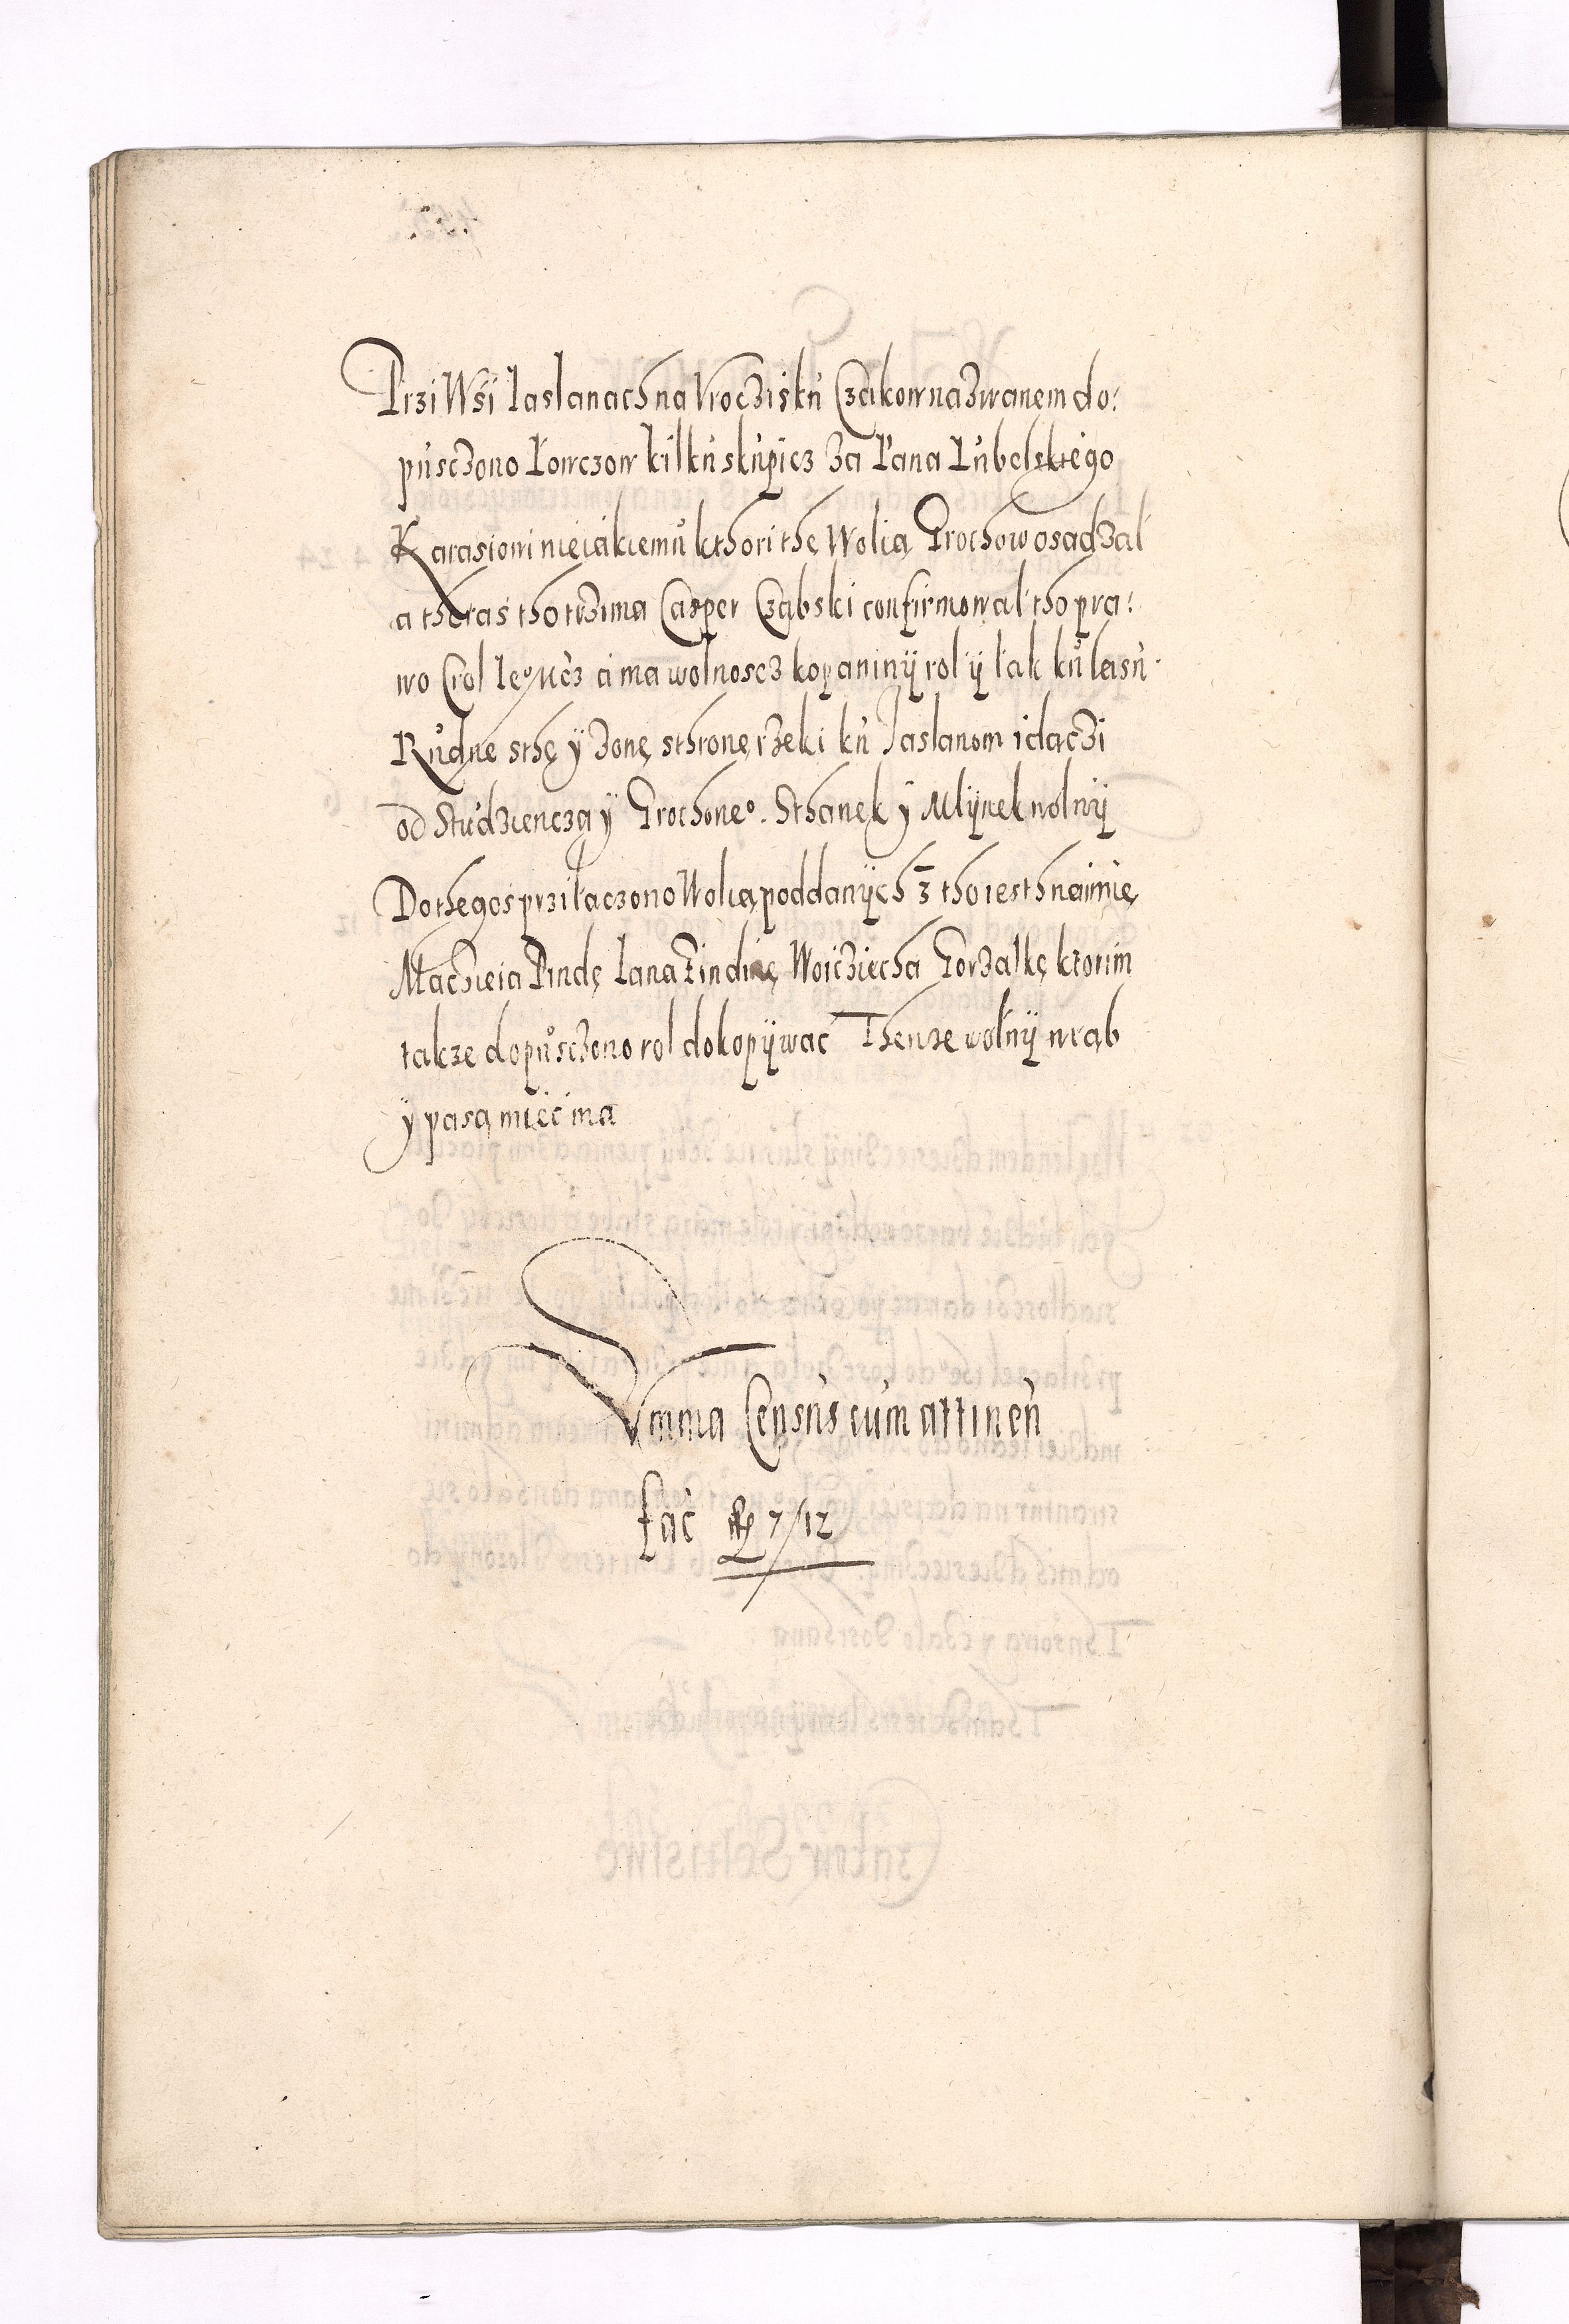 Przi Wsi Iaslanach na Vroczisku Czakow nazwanem do:
pusczono Łowczow kilku skupicz za Pana Lubelskiego
Karasiowi nieiakiemu kthori thę Wolią Grochow osadzał
a theras tho trzima Casper Czabski confirmował tho pra:
wo Crol Ieº Mcz a ma wolnoscz kopaninÿ rol ÿ łak ku lasu
Rudne sthę ÿ onę sthronę rzeki ku Jaslanom idaczi
od Studziencza ÿ Grochoweº. Sthanek ÿ Mlÿnek wolnÿ
Do thegos prziłaczono Wolią poddanÿch 3 tho iesth naimię
Machieia Pindę Iana Woicziecha Gorzalkę ktorim
takze dopusczono rol dokopÿwać Thenze wolnÿ wrąb
ÿ pasą mieć ma
Summa Census cum attinen
fac 7/12